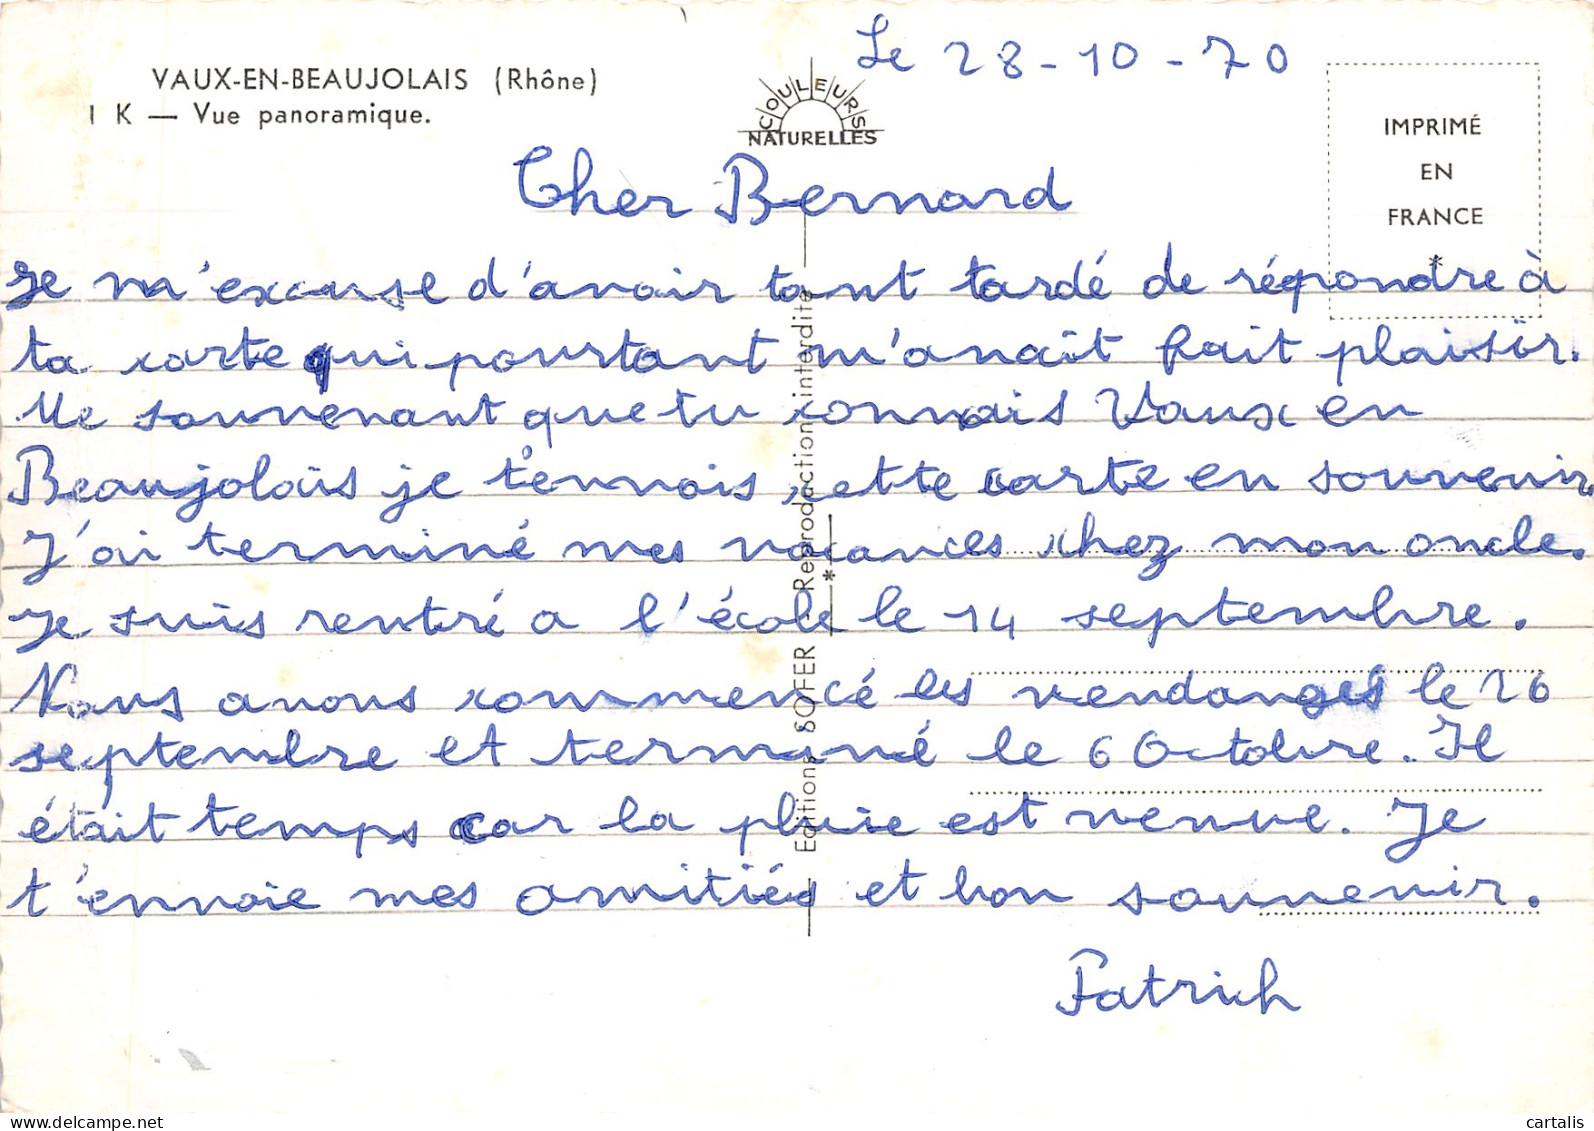 Le 28-10-70
VAUX-EN-BEAUJOLAIS (Rhône)
1 K — Vue panoramique.
COULEURS
NATURELLES
IMPRIMÉ
EN
FRANCE
*
Cher Bernard
Je m'excuse d'avoir tant tardé de répondre à
ta carte qui pourtant m'avait fait plaisir.
Me souvenant que tu connais Vaux en
Beaujolais je t'envois cette carte en souvenir
J'ai terminé mes vacances chez mon oncle.
Je suis rentré a l'école le 14 septembre.
Nous avons commencé les vendanges le 26
septembre et terminé le 6 Octobre. Il
était temps car la pluie est venue. Je
t'envoie mes amitiés et bon souvenir.
Patrick
Editions SOFER — Reproduction interdite
*
cartalis